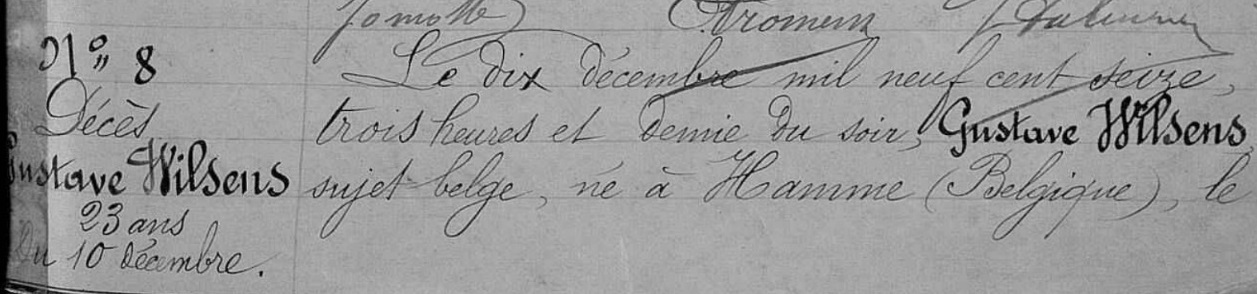 N° 8
Décès
Gustave Wilsens
23 ans
Du 10 décembre.
Le dix décembre mil neuf cent seize,
trois heures et demie du soir, Gustave Wilsens,
sujet belge, né à Hamme (Belgique), le